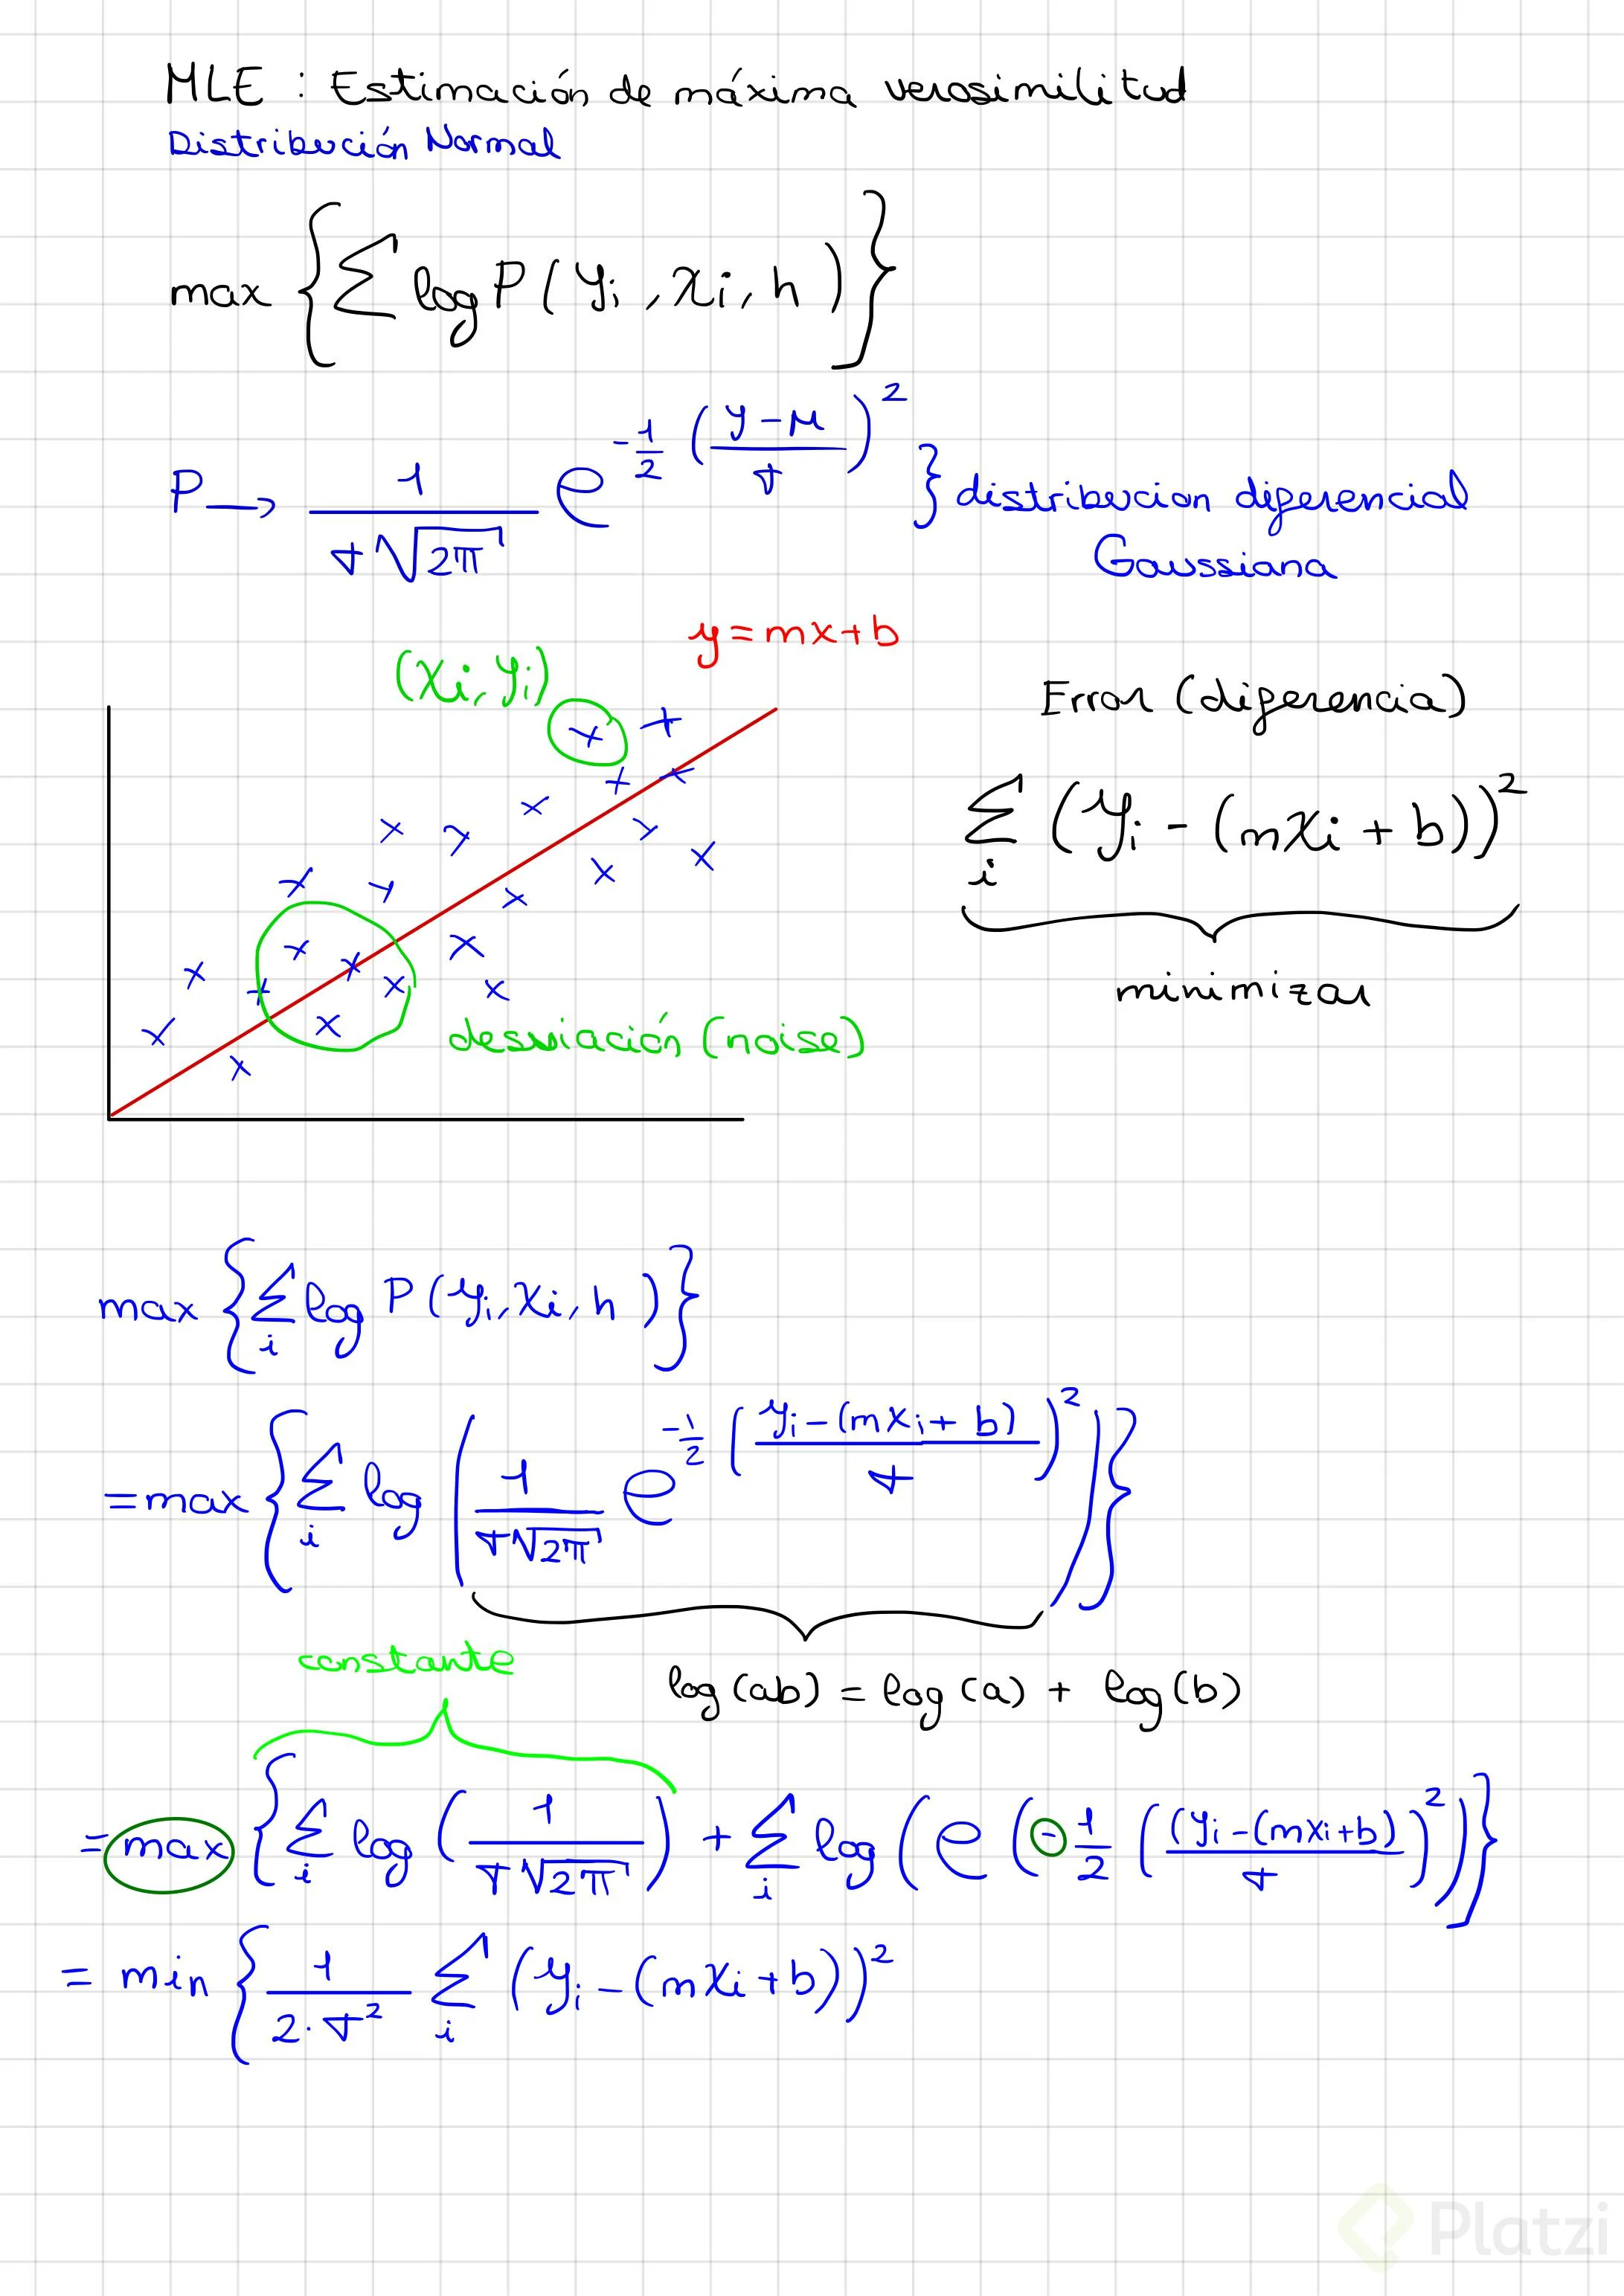 MLE : Estimación de máxima verosimilitud
Distribución Normal
max { ∑ log P ( yi , xi , h ) }
P → 1/(σ√2π) e^(-1/2 ((y-μ)/σ)^2) } distribucion diferencial
Gaussiana
y = mx + b
(xi, yi)
Error (diferencia)
∑i (yi - (mxi + b))^2
minimizar
desviación (noise)
max { ∑i log P ( yi, xi, h ) }
= max { ∑i log ( 1/(σ√2π) e^(-1/2 ((yi - (mxi + b))/σ)^2) ) }
constante
log (ab) = log (a) + log (b)
= max { ∑i log ( 1/(σ√2π) ) + ∑i log ( e ( - 1/2 ( ((yi - (mxi + b))/σ )^2 ) ) }
= min { 1/(2·σ^2) ∑i (yi - (mxi + b))^2
Platzi